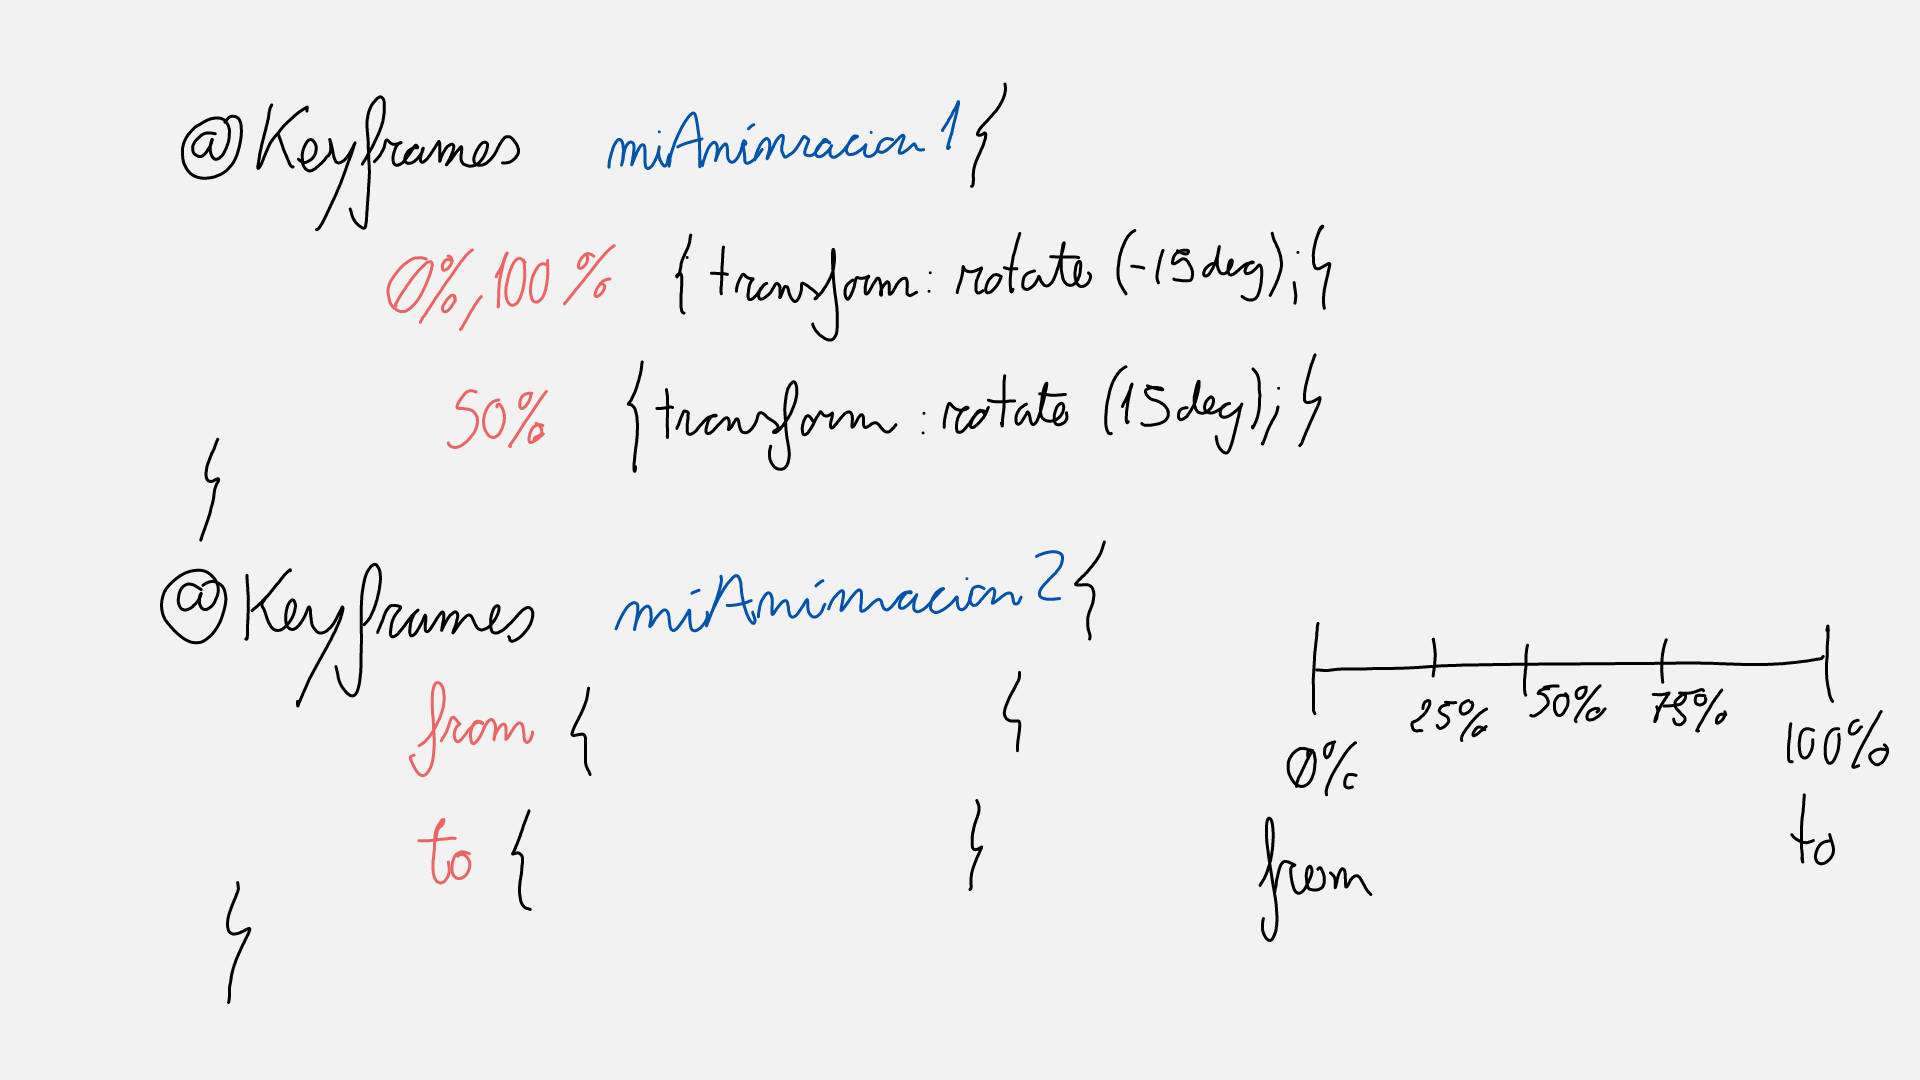 @Keyframes miAnimracion1{
0%,100% {transform: rotate (-15deg);}
50% {transform: rotate (15deg);}
}
@Keyframes miAnimacion2{
from { }
to { }
}
0% 25% 50% 75% 100%
from to